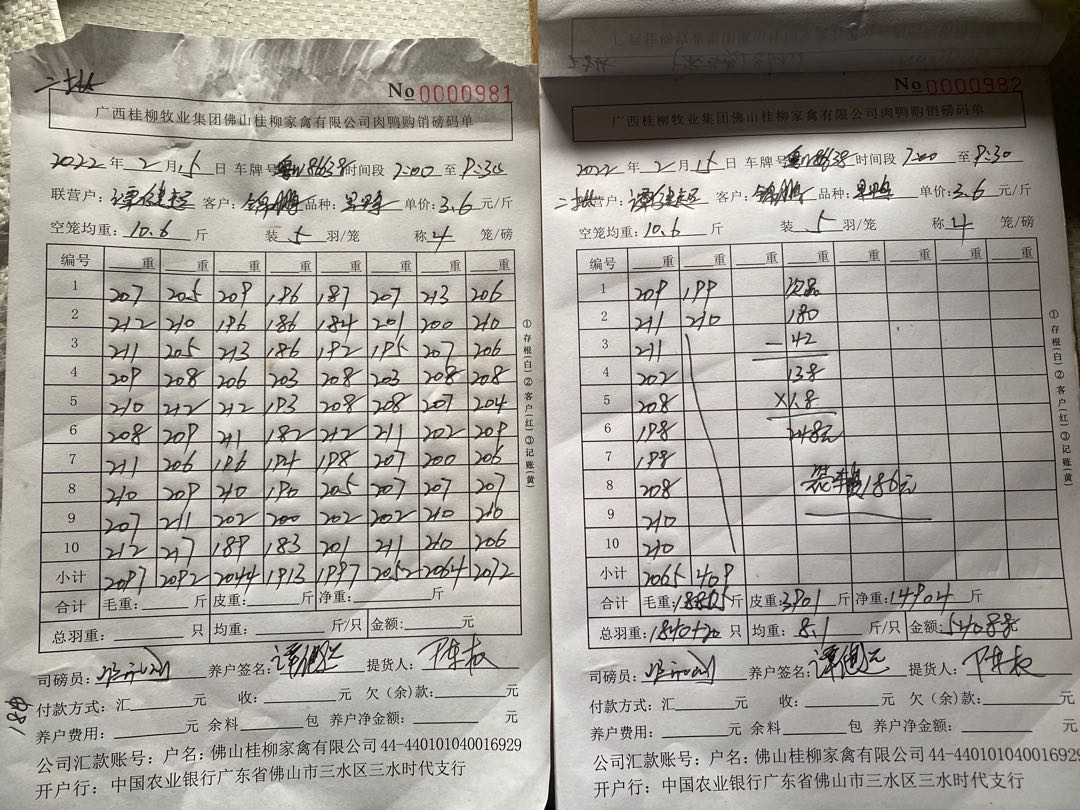 二批
No 0000981
广西桂柳牧业集团佛山桂柳家禽有限公司肉鸭购销磅码单
2022 年 2 月 15 日 车牌号 18638 时间段 7:00 至 9:30
联营户: 谭健超 客户: 锦鹏 品种: 单价: 3.6 元/斤
空笼均重: 10.6 斤 装 5 羽/笼 称 4 笼/磅
编号 重 重 重 重 重 重 重 重
1 207 205 209 186 187 207 213 206
2 212 210 196 186 184 201 200 210
3 211 205 213 186 192 195 207 206
4 209 208 206 203 208 203 208 208
5 210 212 212 193 208 208 207 204
6 208 209 211 182 212 211 202 209
7 211 206 196 194 198 207 200 206
8 210 209 210 190 205 207 207 207
9 207 211 202 200 202 202 210 210
10 212 217 189 183 201 211 210 206
小计 2097 2092 2044 1913 1997 2052 2064 2072
合计 毛重: 斤 皮重: 斤 净重: 斤
总羽重: 只 均重: 斤/只 金额: 元
司磅员: 养户签名: 谭健超 提货人: 陈权
付款方式: 汇 元 收: 元 欠(余)款: 元
养户费用: 元 余料 包 养户净金额: 元
公司汇款账号: 户名: 佛山桂柳家禽有限公司 44-440101040016929
开户行: 中国农业银行广东省佛山市三水区三水时代支行
①存根(白)②客户(红)③记账(黄)
No 0000982
广西桂柳牧业集团佛山桂柳家禽有限公司肉鸭购销磅码单
2022 年 2 月 15 日 车牌号 18638 时间段 7:00 至 9:30
二批 营户: 谭健超 客户: 锦鹏 品种: 单价: 3.6 元/斤
空笼均重: 10.6 斤 装 5 羽/笼 称 4 笼/磅
编号 重 重 重 重 重 重 重 重
1 209 199 次品
2 211 210 180
3 211 -42
4 202 138
5 208 ×1.8
6 198 248元
7 198
8 208 186元
9 210
10 210
小计 2065 409
合计 毛重: 18805 斤 皮重: 3901 斤 净重: 14904 斤
总羽重: 1840+20 只 均重: 8.1 斤/只 金额: 54088元
司磅员: 养户签名: 谭健超 提货人: 陈权
付款方式: 汇 元 收: 元 欠(余)款: 元
养户费用: 元 余料 包 养户净金额: 元
公司汇款账号: 户名: 佛山桂柳家禽有限公司 44-440101040016929
开户行: 中国农业银行广东省佛山市三水区三水时代支行
①存根(白)②客户(红)③记账(黄)